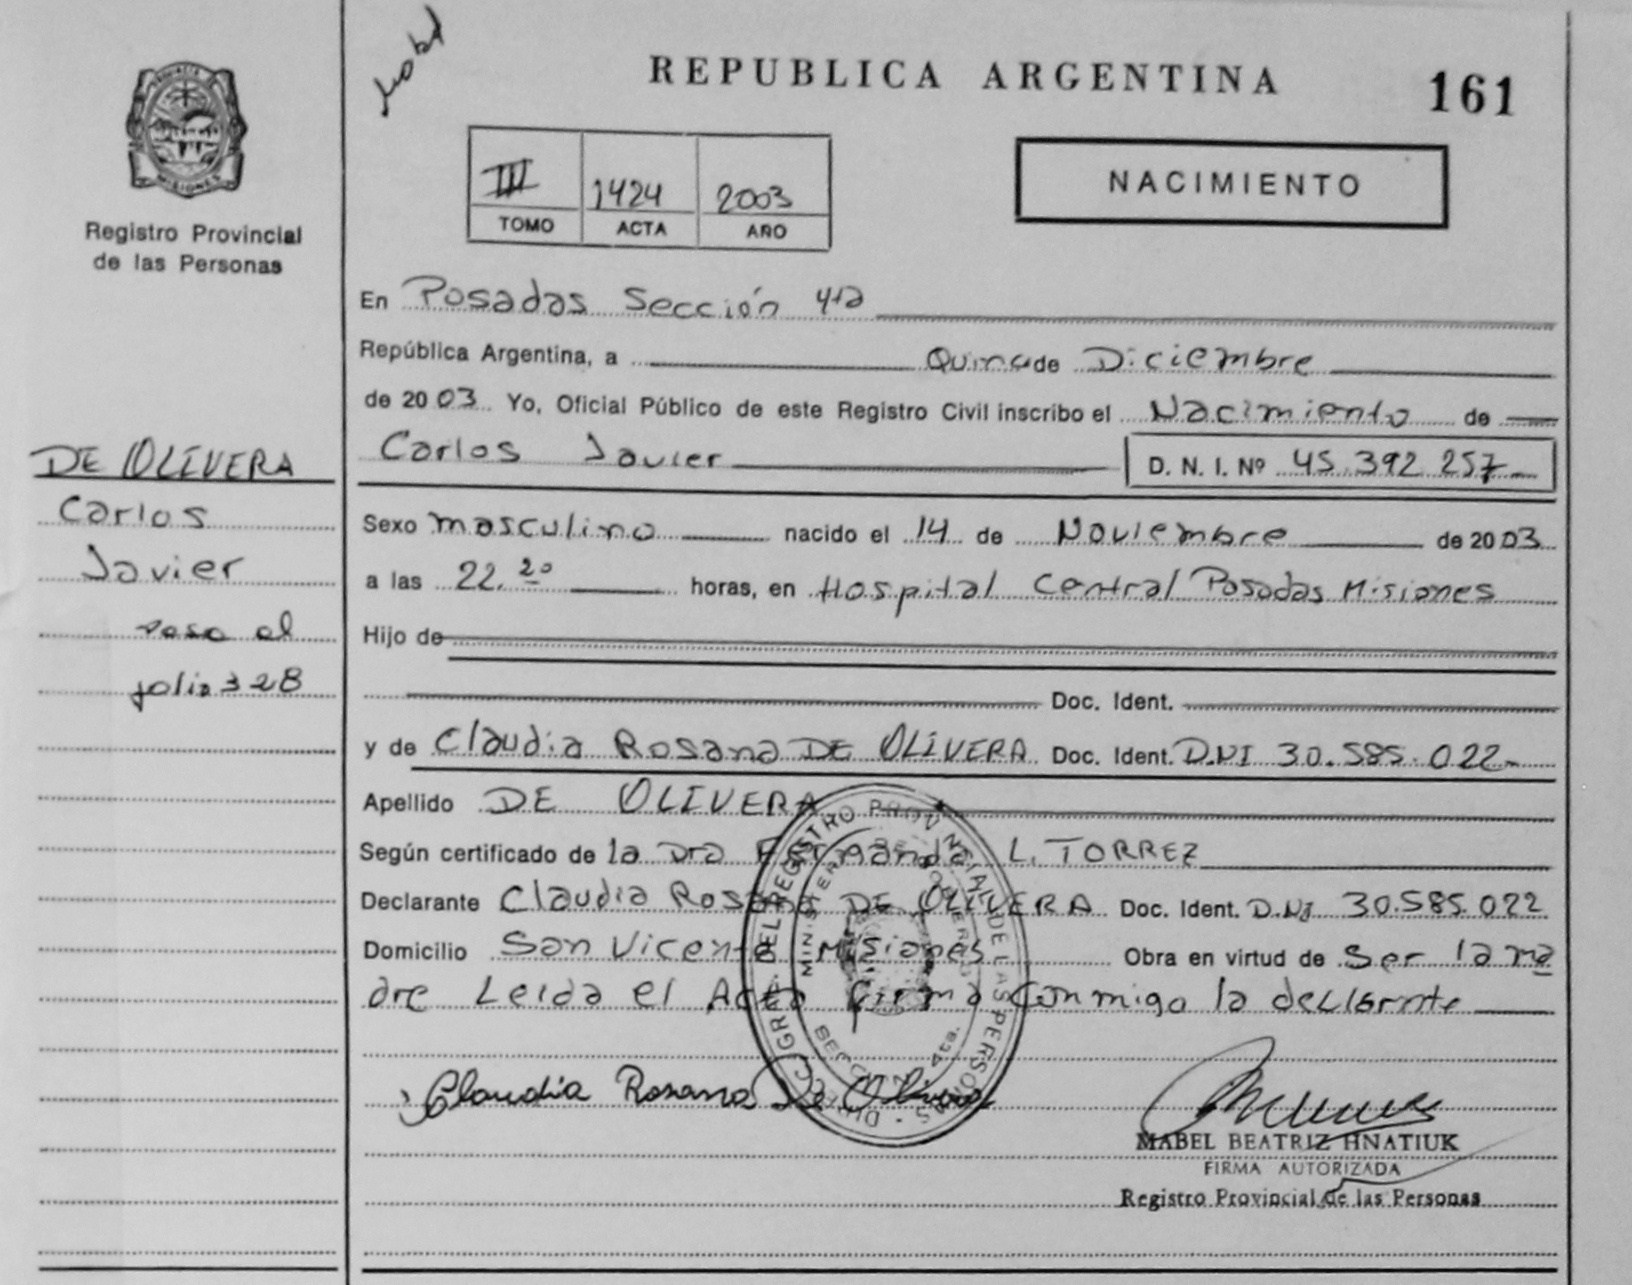 Mabel
REPUBLICA ARGENTINA
161
PROVINCIA DE
MISIONES
Registro Provincial
de las Personas
III 1424 2003
TOMO ACTA AÑO
NACIMIENTO
En Posadas Sección 4ta
República Argentina, a Quince de Diciembre
de 2003 Yo, Oficial Público de este Registro Civil inscribo el Nacimiento de
Carlos Javier D. N. I. Nº 45.392.257
DE OLIVERA
Carlos
Javier
Pasa al
folio 328
Sexo masculino nacido el 14 de Noviembre de 2003
a las 22.20 horas, en Hospital Central Posadas Misiones
Hijo de
Doc. Ident.
y de Claudia Rosana DE OLIVERA Doc. Ident. D.NI 30.585.022
Apellido DE OLIVERA
Según certificado de la Dra Fernanda L. TORREZ
Declarante Claudia Rosana DE OLIVERA Doc. Ident. D.NI 30.585.022
Domicilio San Vicente Misiones Obra en virtud de Ser la ma
dre Leida el Acta Firma Conmigo la declarante
Claudia Rosana De Olivera
DIRECC. GRAL. DEL REGISTRO PROVINCIAL DE LAS PERSONAS
MINISTERIO DE GOBIERNO
SECCION 4ta.
MABEL BEATRIZ HNATIUK
FIRMA AUTORIZADA
Registro Provincial de las Personas